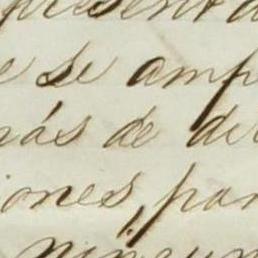 present
e se amp
más de de
iones, par
ningun